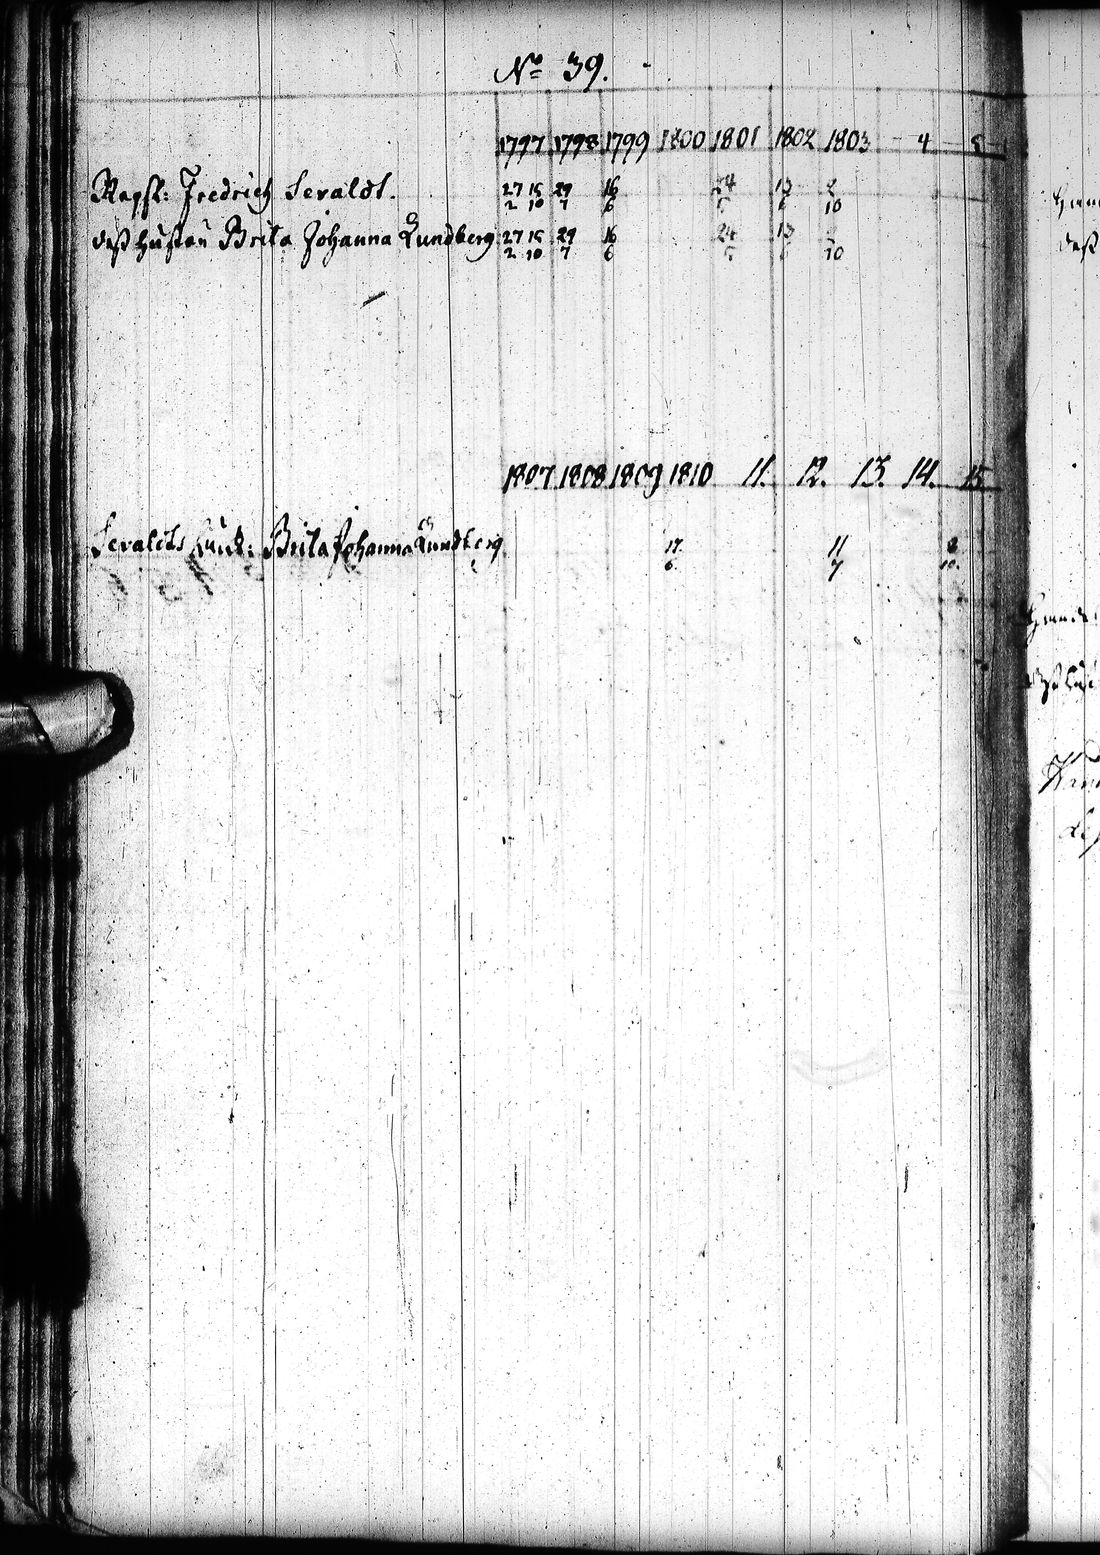 No 39.
1797 1798 1799 1800 1801 1802 1803 4 5
Fredrich Sevaldt. 27 15 29 16 24 13 2
2 10 7 6 5 6 10
dess hustru Brita Johanna Lundberg 27 15 29 16 24 13
2 10 7 6 5 6 10
1807 1808 1809 1810 11. 12. 13. 14. 15
Sevaldts Enk: Brita Johanna Lundberg 17. 11 2
6 7 10.
dess